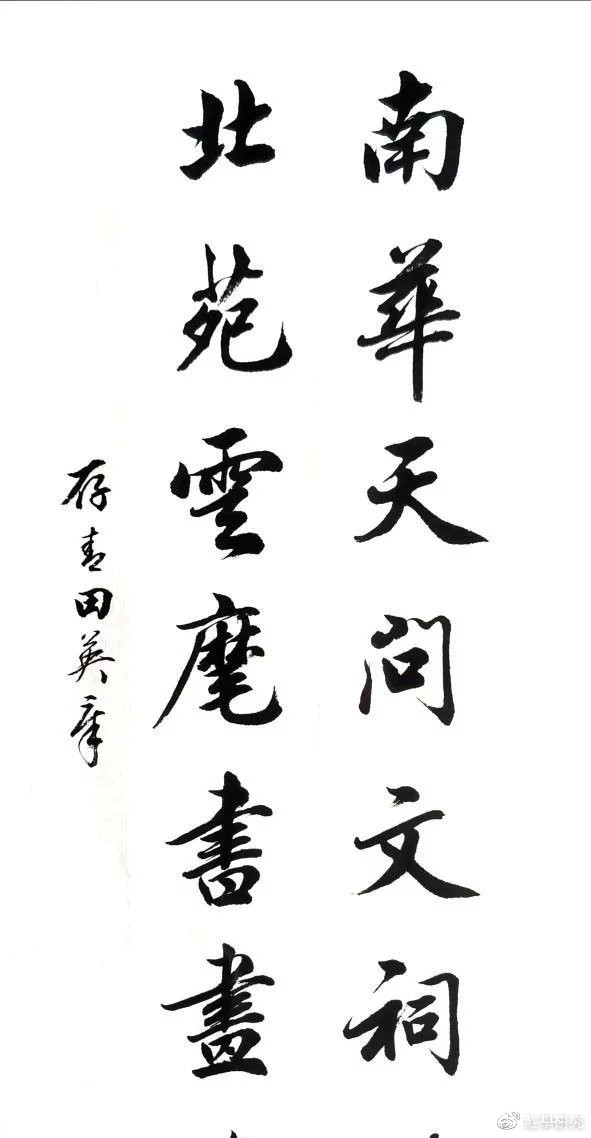 南華天問文祠
北苑雲麾書畫
存青田英章